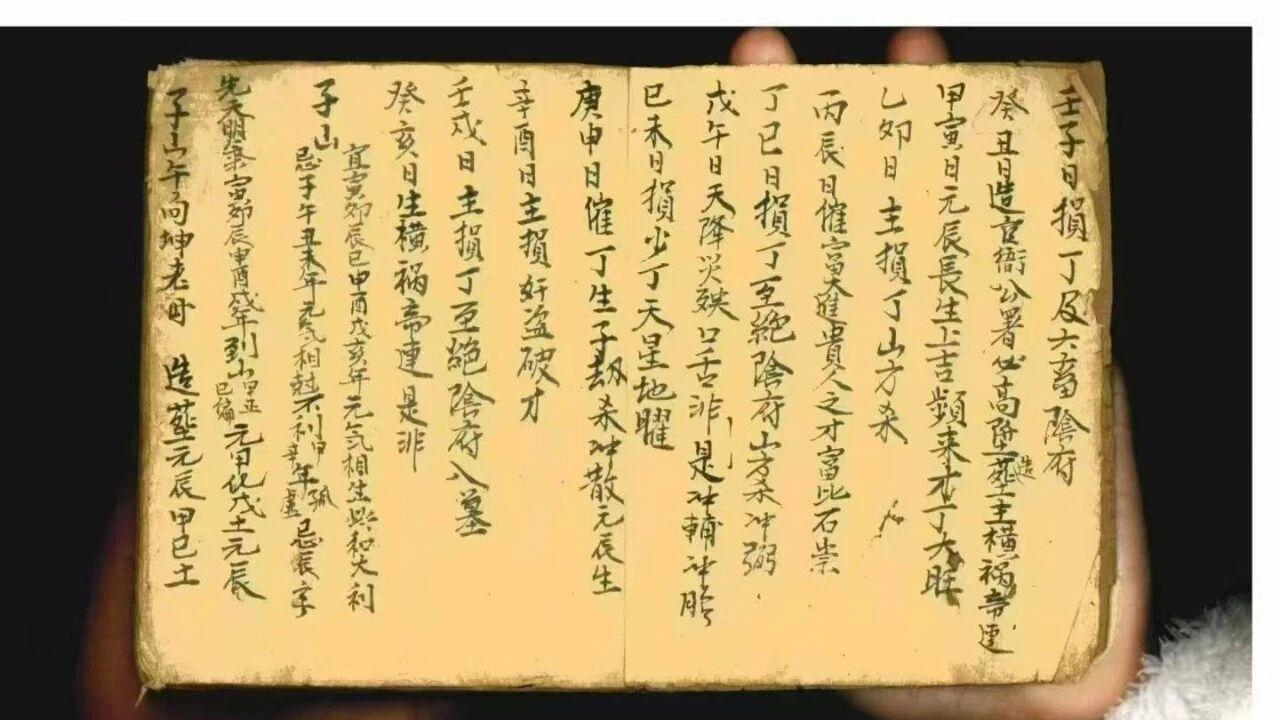 壬子日損丁及六畜陰府
癸丑日造官衙公署必高陞造塟主横祸帝連
甲寅日元辰長生上吉頻来才丁大旺
乙夘日主損丁山方杀
丙辰日催富大進貴人之才富比石崇
丁巳日損丁至絕陰府山方杀冲弼
戊午日天降災殃口舌非是冲輔冲
巳未日損少丁天星地曜
庚申日催丁生子刼杀冲散元辰生
辛酉日主損奸盗破才
壬戌日主損丁至絕陰府入墓
癸亥日生横祸帝連是非
子山
宜寅夘辰巳申酉戌亥年元氣相生 和大利
忌子午丑未年元氣相尅不利甲辛年孤虛忌辰字
先天 寅夘辰申酉戌年到山甲正巳偏元甲化戊土元辰
子山午向坤老 造塟元辰甲巳土